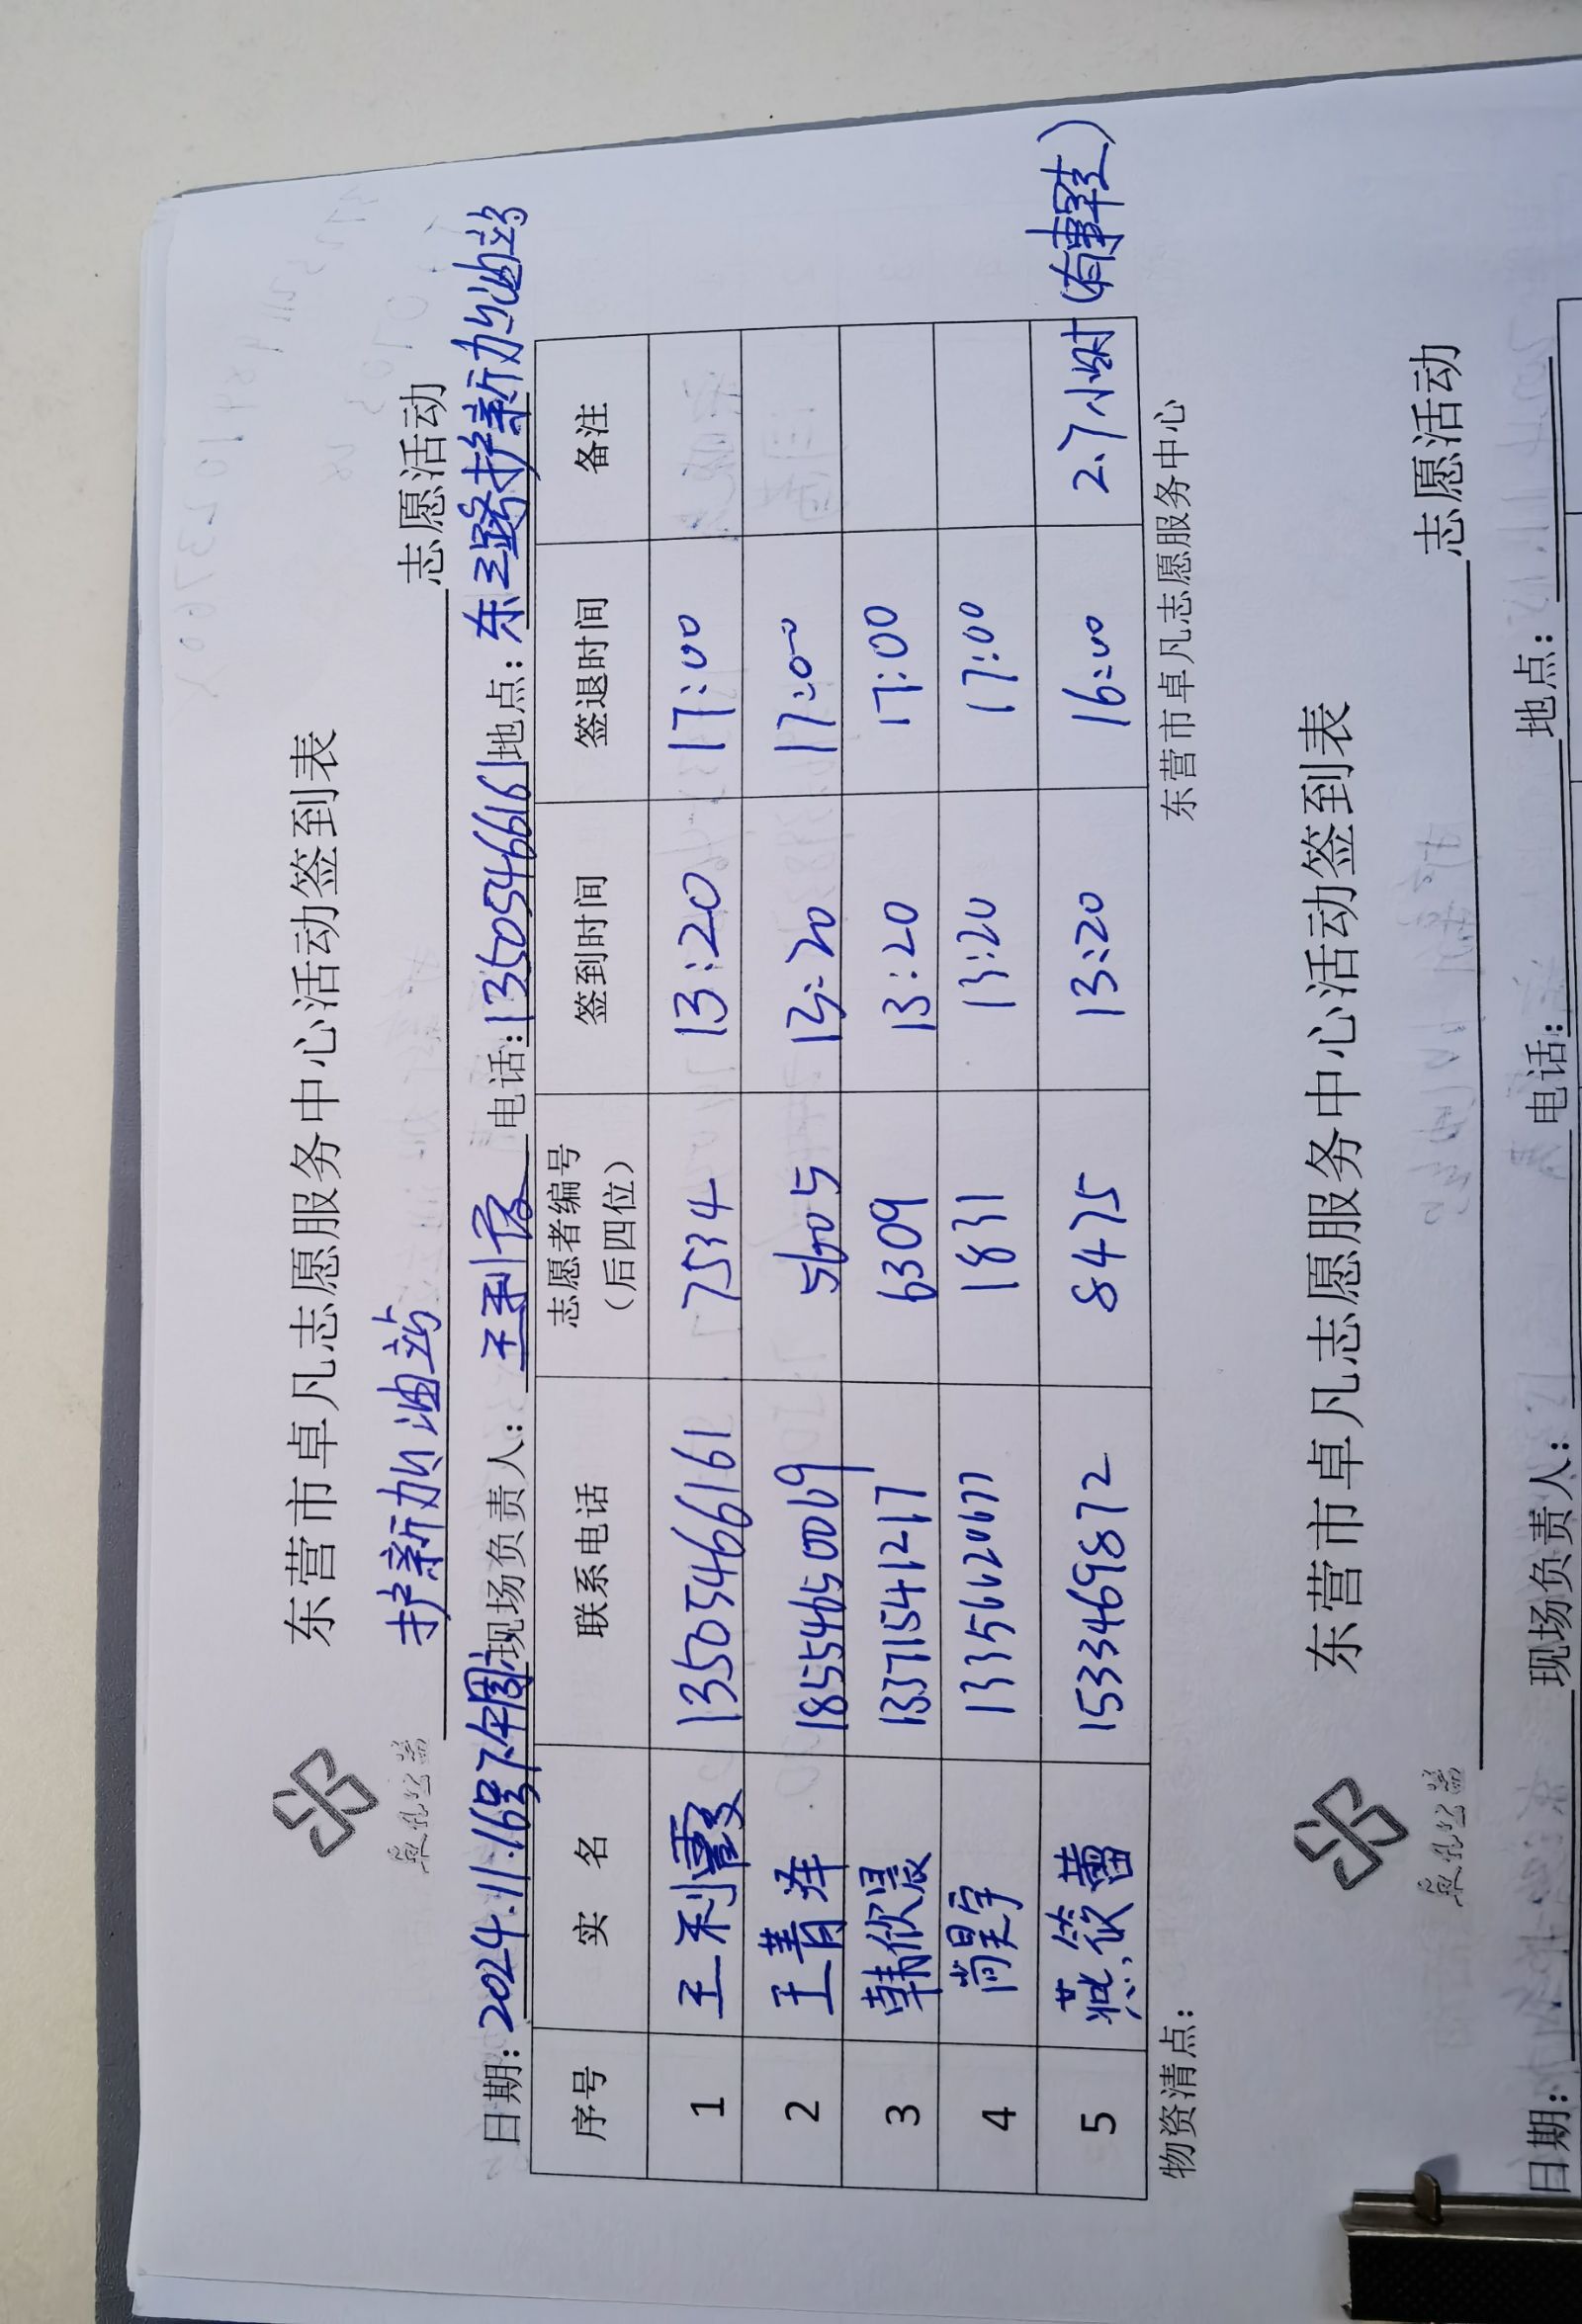 东营市卓凡志愿服务中心活动签到表
护新加油站 志愿活动
日期：2024.11.16号下午周六 现场负责人：王利霞 电话：13505466161 地点：东三路护新加油站
序号 实 名 联系电话 志愿者编号（后四位） 签到时间 签退时间 备注
1 王利霞 13505466161 7534 13:20 17:00
2 王菁 18554650069 5605 13:20 17:00
3 韩欣晨 13371541217 6309 13:20 17:00
4 尚昊宇 13356620677 1831 13:20 17:00
5 燕筱蕾 1533469872 8475 13:20 16:00 2.7小时(有事早走)
物资清点： 东营市卓凡志愿服务中心
东营市卓凡志愿服务中心活动签到表
志愿活动
日期： 现场负责人： 电话： 地点：